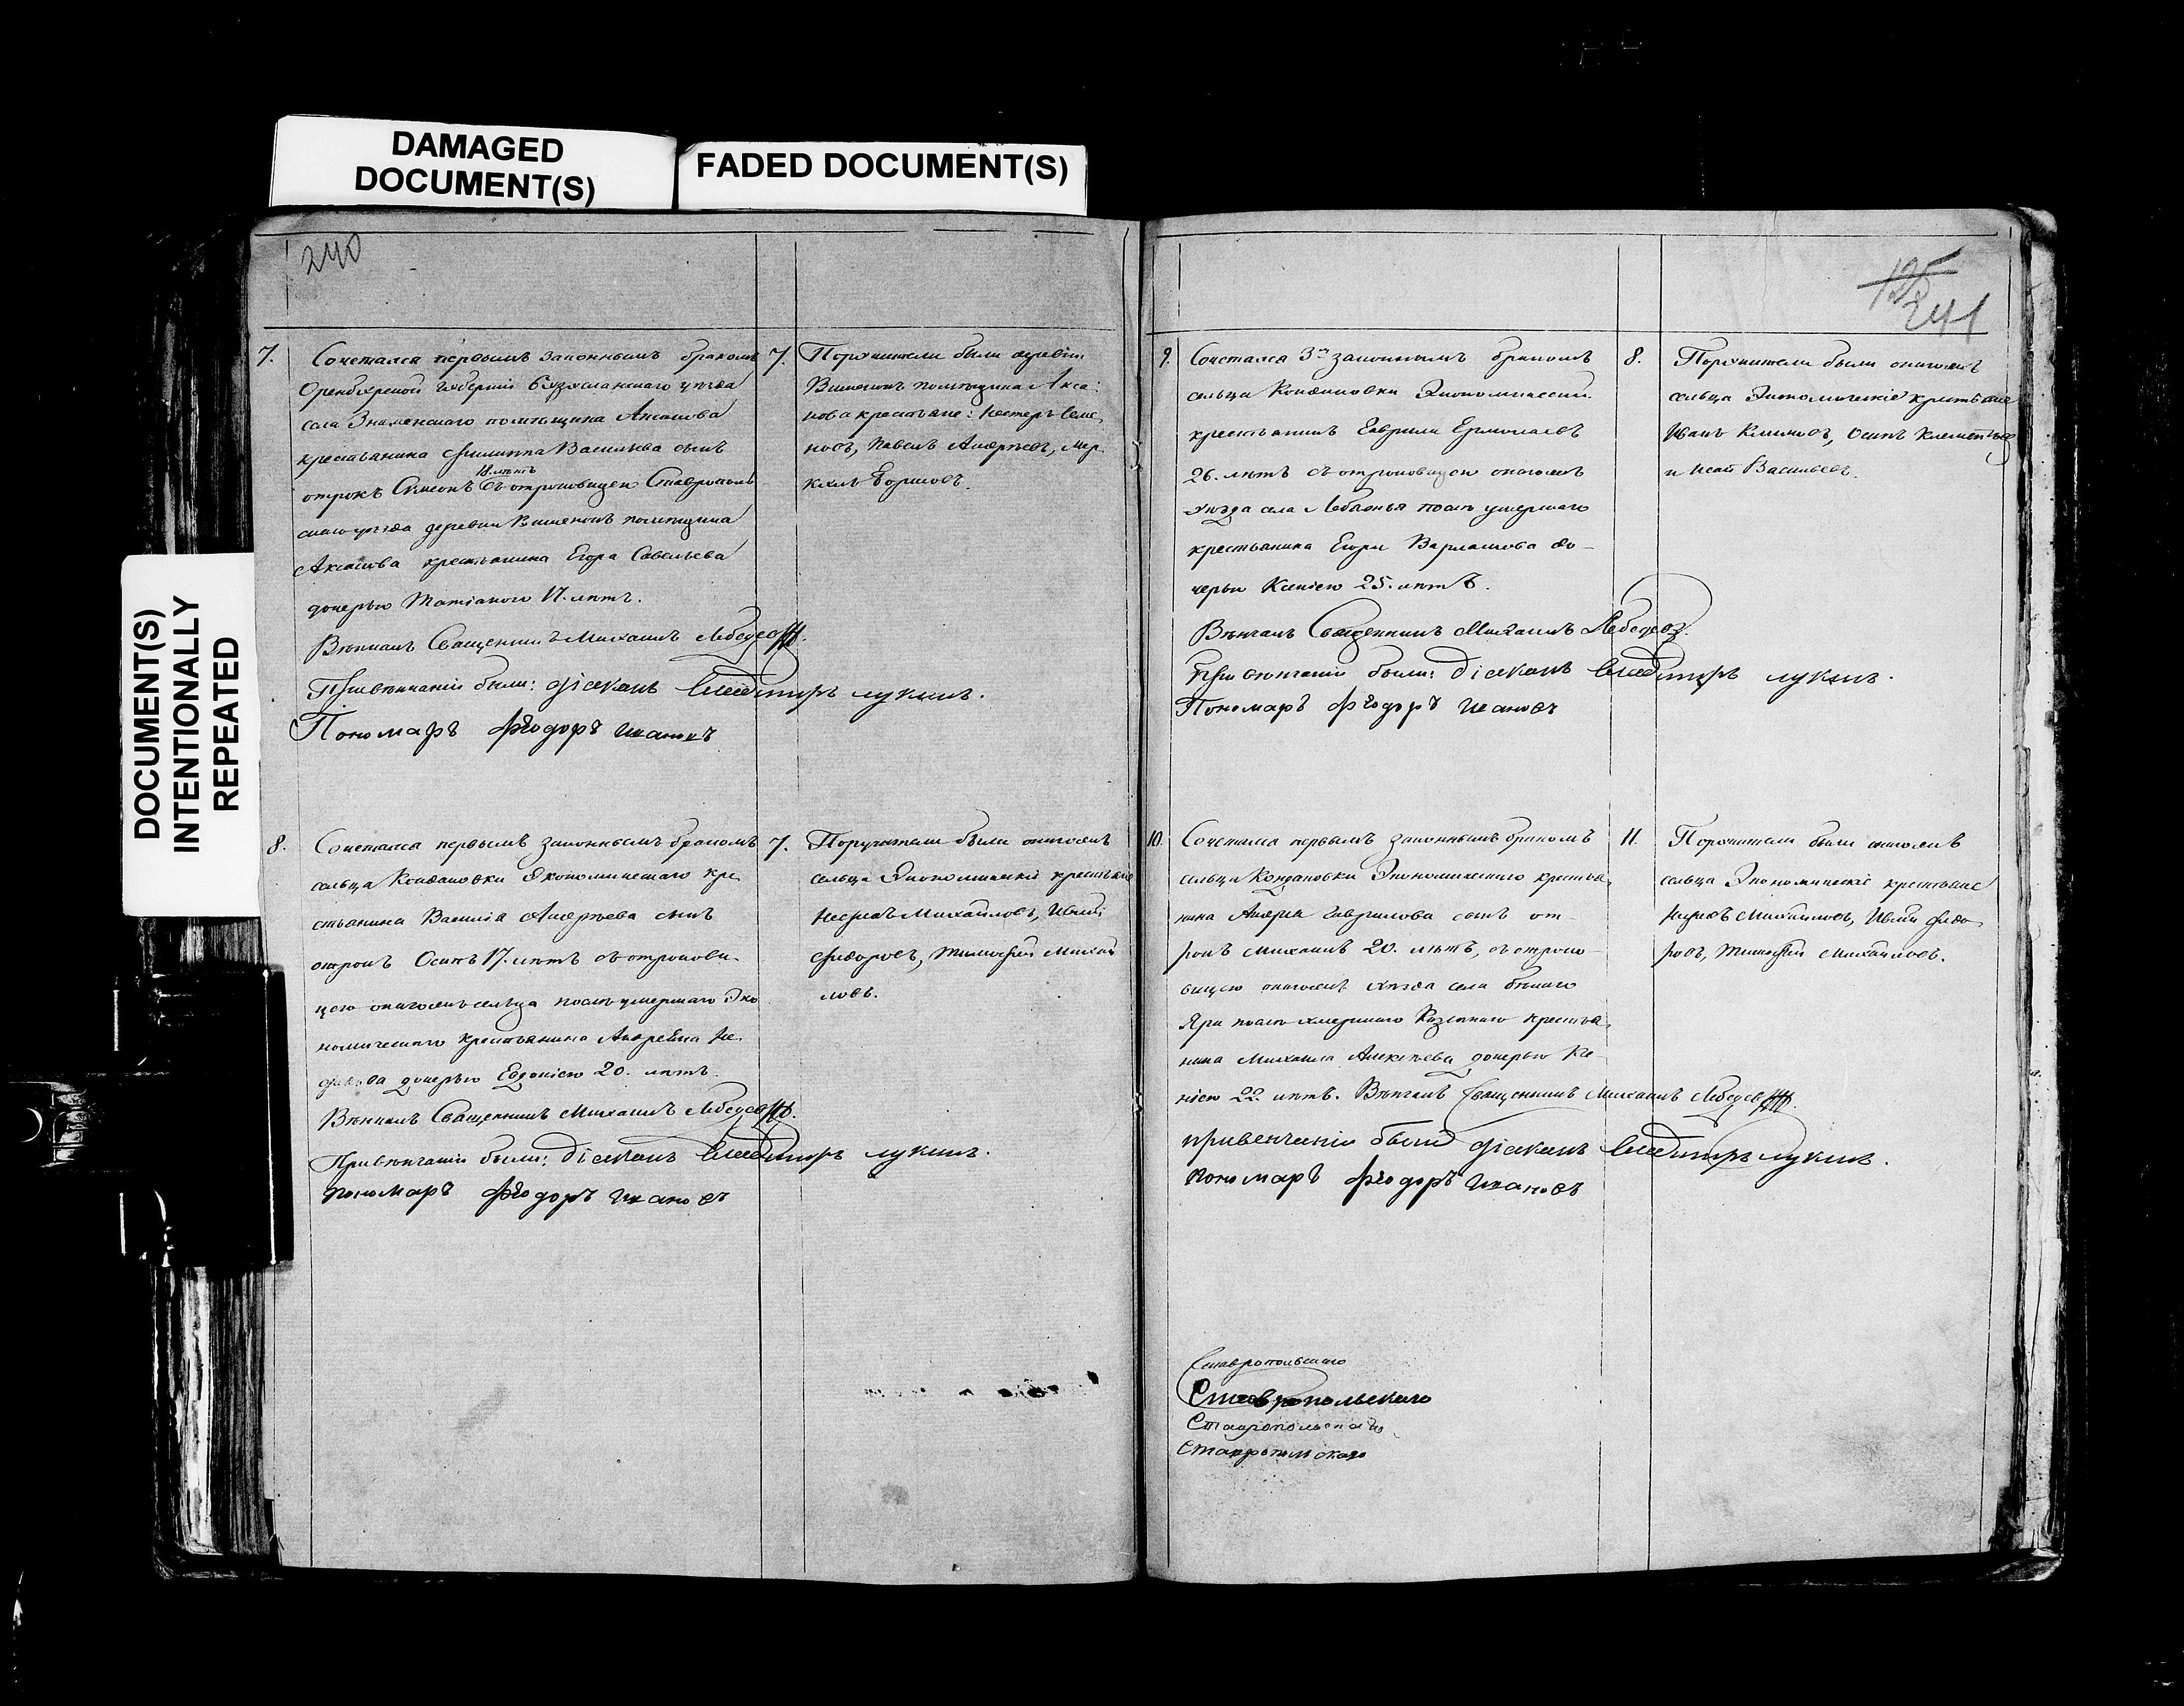 DAMAGED
DOCUMENT(S)
FADED DOCUMENT(S)
DOCUMENT(S)
INTENTIONALLY
REPEATED
240
7.
Сочетался первымъ законнымъ бракомъ
Оренбургской губерніи Бузулукскаго уѣзда
села Знаменскаго помѣщика Аксакова
крестьянина Филиппа Васильева сынъ
18. лѣтъ
отрокъ Симеонъ съ отроковицею Ставрополь
скаго уѣзда деревни Вишенокъ помѣщика
Аксакова крестьянина Егора Савельева
дочерью Татіаною 17. лѣтъ.
Вѣнчалъ Священникъ Михаилъ Лебедевъ.
При вѣнчаніи были: діаконъ Владимиръ лукинъ.
Пономаръ Ѳѣодоръ Ивановъ
7.
Поручители были деревни
Вишенокъ помѣщика Акса:
кова крестьяне: Несторъ Семе
новъ, Павелъ Андрѣевъ, Мер
кулъ Борисовъ.
8.
Сочетался первымъ законнымъ бракомъ
сельца Кондаковки Экономическаго кре
стьянина Василія Андрѣева сынъ
отрокъ Осипъ 17. лѣтъ съ отрокови-
цею онагожъ сельца послѣ умершаго Эко
номическаго крестьянина
дочерью Евдокіею 20. лѣтъ.
Вѣнчалъ Священникъ Михаилъ Лебедевъ.
При вѣнчаніи были: діаконъ Владимиръ лукинъ.
пономаръ Ѳѣодоръ Ивановъ
7.
Поручители были онагожъ
сельца Экономическіе крестьяне
Михайловъ,
Ѳедоровъ, Тимофей Михай
ловъ.
125
241
9.
Сочетался 3мъ законнымъ бракомъ
сельца Кондаковки Экономической
крестьянинъ Гаврила Ермолаевъ
26. лѣтъ съ отроковицею онагожъ
уѣзда села Лебяжья послѣ умершаго
крестьянина Егора Варламова до-
черью Ксеніею 25. лѣтъ.
Вѣнчалъ Священникъ Михаилъ Лебедевъ.
При вѣнчаніи были: діаконъ Владимиръ лукинъ.
Пономаръ Ѳѣодоръ Ивановъ
8.
Поручители были онагожъ
сельца Экономическіе крестьяне
Иванъ Климовъ, Осипъ Клементьев
и Исай Васильевъ.
10.
Сочетался первымъ законнымъ бракомъ
сельца Кондаковки Экономическаго крестья
нина Андрея Гаврилова сынъ от-
рокъ Михаилъ 20. лѣтъ, съ отроко-
вицею онагожъ уѣзда села бѣлаго
Яра послѣ умершаго Казеннаго крестья
нина Михаила Алексѣева дочерью Ксе-
ніею 22. лѣтъ. Вѣнчалъ Священникъ Михаилъ Лебедевъ.
привенчаніи были діаконъ Владимиръ лукинъ.
пономаръ Ѳѣодоръ Ивановъ
11.
Поручители были онагожъ
сельца Экономическіе крестьяне
Михайловъ, Ѳедо
ровъ, Тимофей Михайловъ.
Ставропольскаго
Ставропольскаго
Ставропольскаго
Ставропольскаго